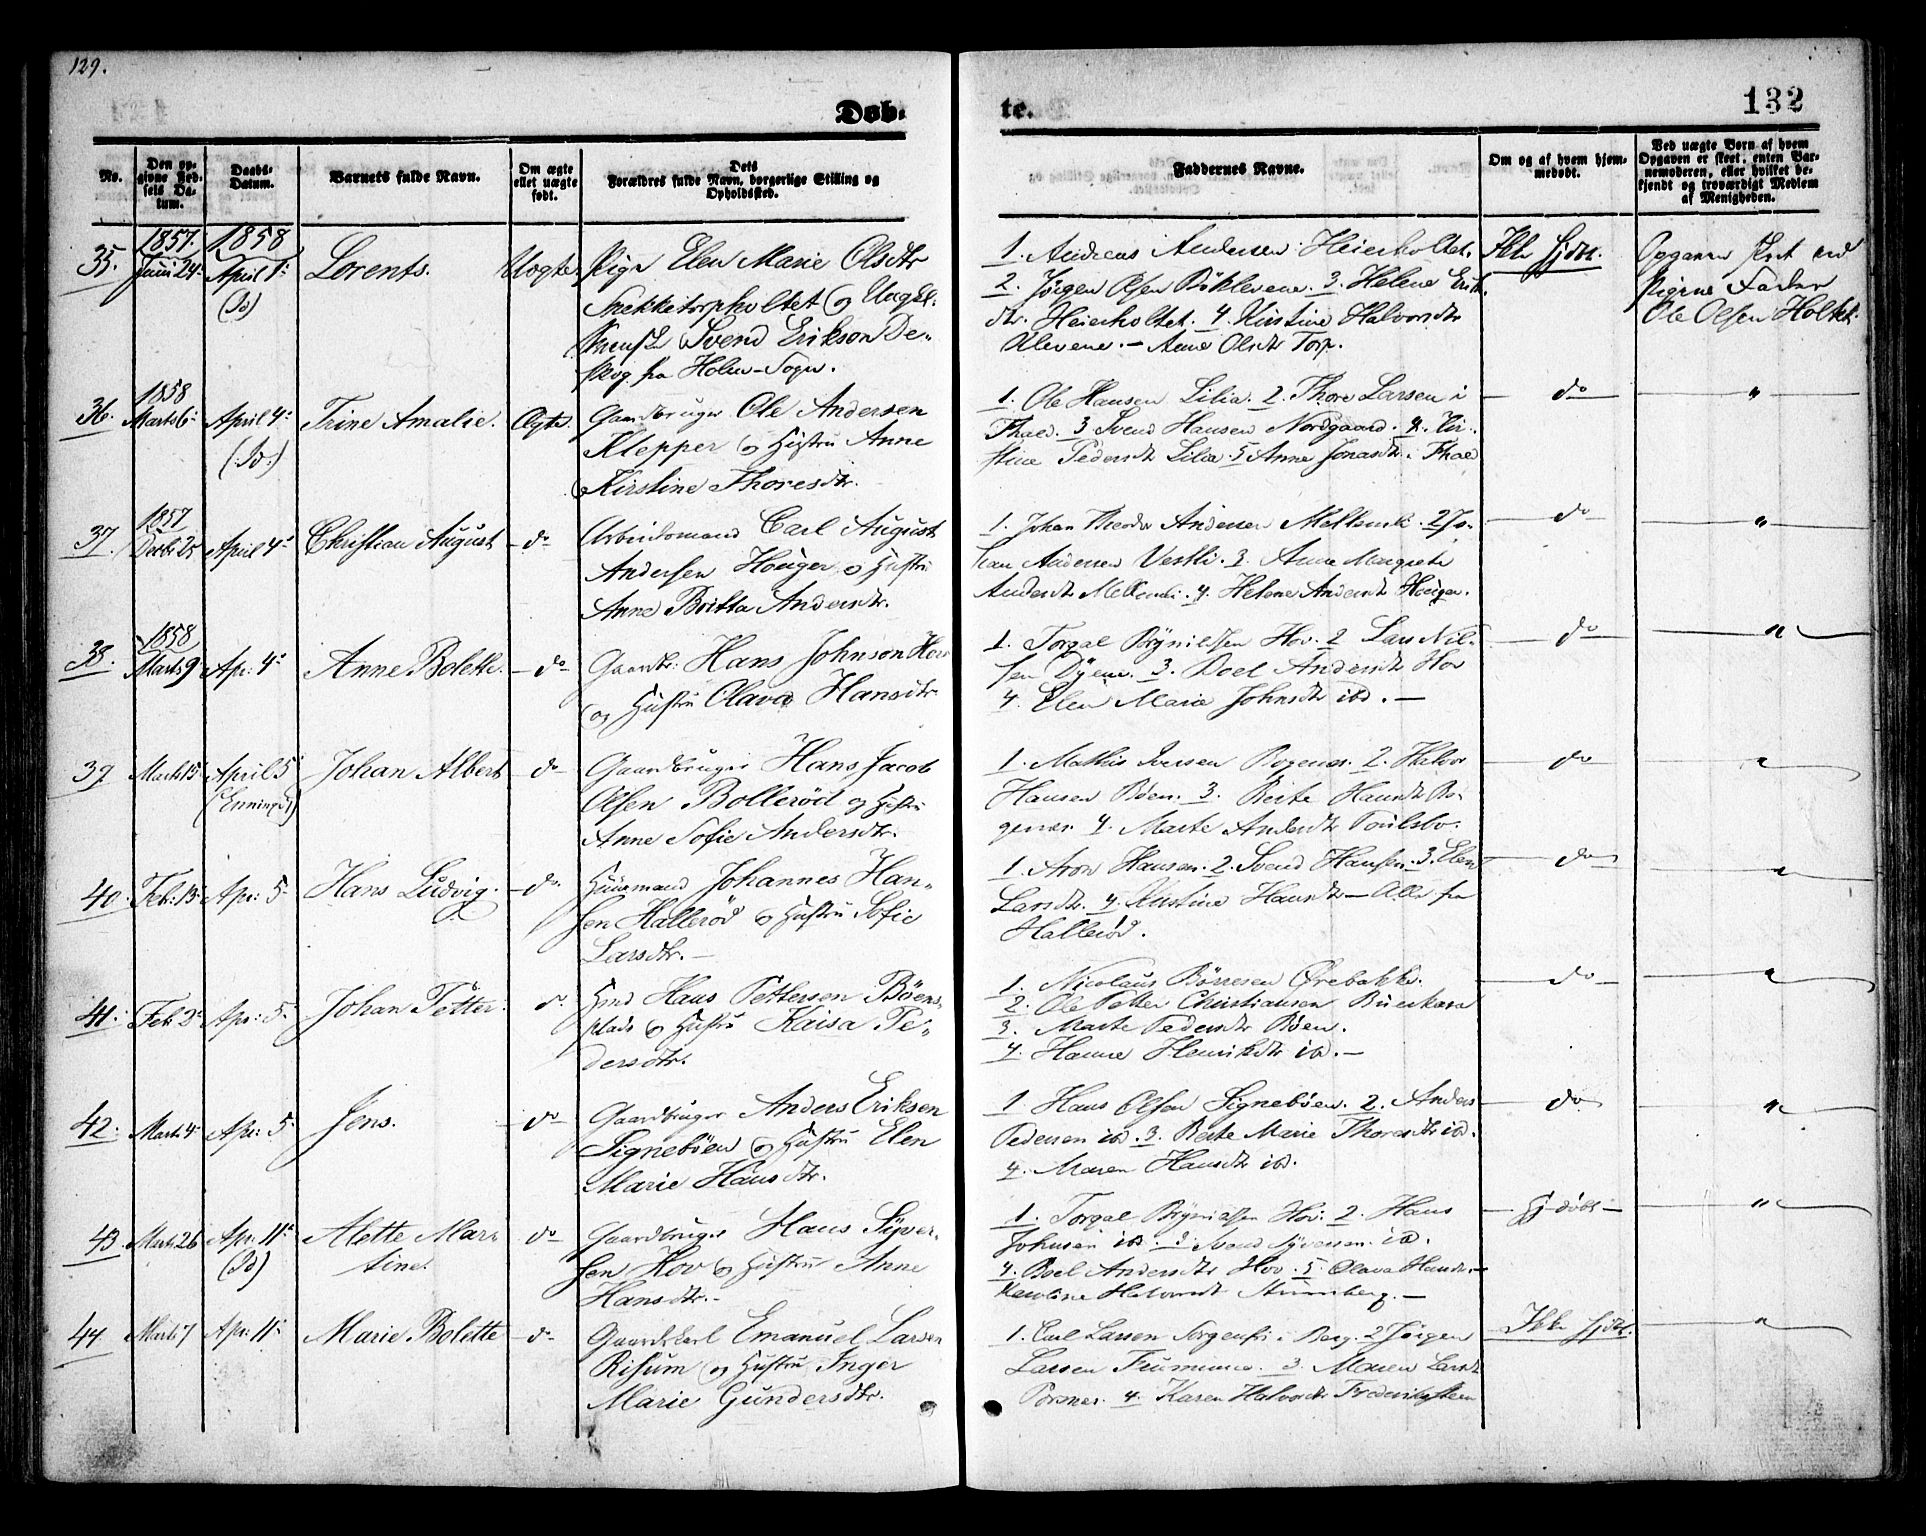 129.
132
Døb-
te.
No.
Den op-
givne Fød-
sels Da-
tum.
Daabs-
Datum.
Barnets fulde Navn.
Om ægte
ellet uægte
født.
Dets
Forældres fulde Navn, borgerlige Stilling og
Opholdssted.
Faddernes Navne.
Om og af hvem hjem-
medøbt.
Ved uægte Børn af hvem
Opgaven er skeet, enten Bar-
nemoderen, eller hvilket be-
kjendt og troværdigt Medlem
af Menigheden.
35. 1857. Juni 24. 1858 April 1. (Id) Lorents. Uægte.
Pige Elen Marie Olsdtr
og Ungk.
Svend Erikson De-
fra Holm-Sogn.
1. Andreas Andersen Heierholtet.
2. Jørgen Olsen 3. Helene Erik
dtr. Heierholtet. 4. Kirstine Halvorsdtr
Klevene. — Anne Olsdtr Torp.
Ikke hjdbt.
Opgaven skeet ved
Pigens Fader
Ole Olsen Holtet.
36. 1858 Marts 6. April 4. (Id.) Trine Amalie. Ægte.
Gaardbruger Ole Andersen
Klepper og Hustru Anne
Kirstine Thoresdtr.
1. Ole Hansen Lilia. 2. Thore Larsen i
Thald. 3 Svend Hansen Nordgaard. 4. Kir-
stine Pedersdtr Liliæ. 5 Anne Jonasdtr. i Thal
do
"
37. 1857 Decbr 25 April 4. Christian August do
Arbeidsmand Carl August
Andersen Houger og Hustru
Anne Britta Andersdtr.
1. Johan Theodor Andersen 2 Jo-
han Andersen Vestli. 3. Anne Margrete
Andersdtr 4. Helene Andersdtr Houger.
do
"
38. 1858 Marts 9 Apr: 4. Anne Bolette. do
Gaardbr: Hans Johnson Hov
og Hustru Olava Hansdtr
1. Torgal Brynildsen Hov. 2 Lars Nil-
sen 3. Boel Andersdtr Hov
4. Elen Marie Johnsdtr ibd. —
do
"
39 Marts 15. April 5. (Enninged) Johan Albert do
Gaardbruger Hans Jacob
Olsen Bollerød og Hustru
Anne Sofie Andersdtr.
1. Mathis Iversen Bogenæs. 2. Halvor
Hansen Bøen. 3. Berte Hansdtr Bo-
genæs. 4. Marte Andersdtr Poulsbo.
do
"
40. Feb: 15. Apr: 5. Hans Ludvig. do
Huusmand Johannes Han-
sen Hallerød og Hustru Sofie
Larsdtr. —
1. Aron Hansen. 2. Svend Hansen. 3. Elen
Larsdtr. 4. Kirstine Hansdtr — Alle fra
Hallerød.
do
"
41. Feb: 2. Apr: 5. Johan Petter. do
Hmd Hans Pettersen Bøens-
plads og Hustru Kaisa Pe-
dersdtr.
1. Nicolaus Børresen Ørebakke.
2. Ole Petter Christiansen
3. Marte Pedersdtr Bøen.
4. Hanne Henriksdtr ibd. —
do
"
42. Marts 4. Apr: 5. Jens. do
Gaardbruger Anders Eriksen
Signebøen og Hustru Elen
Marie Hansdtr.
1. Hans Olsen Signebøen. 2. Anders
Pedersen ibd. 3. Berte Marie Thoresdtr ibd.
4. Maren Hansdtr ibd.
do
"
43. Marts 26 Apr: 11. (Id) Alette Mar-
tine. do
Gaardbruger Hans Syver-
sen Hov og Hustru Anne
Hansdtr. —
1. Torgal Brynildsen Hov. 2. Hans
Johnsen ibd. 3. Svend Syversen ibd.
4. Boel Andersdtr Hov. 5. Olava Hansdtr. —
Karoline Halvorsdtr —
Hj-døbt —
"
44. Marts 7 Apr: 11. Marie Bolette do
Gaardskarl Emanuel Larsen
Risum og Hustru Inger
Marie Gundersdtr.
1. Carl Larsen Sorgenfri i Berg. 2 Jørgen
Larsen 3. Maren Larsdtr
4. Karen Halvorsdtr Frederiksteen
Ikke hjdbt.
"